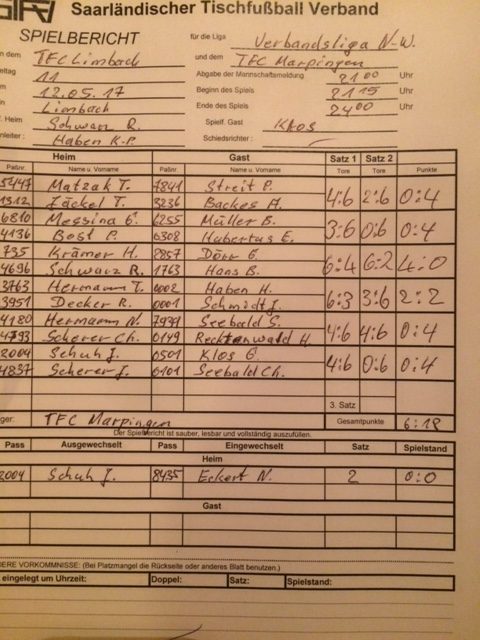 Saarländischer Tischfußball Verband
SPIELBERICHT für die Liga Verbandsliga N-W.
dem TFC Limbach und dem TFC Marpingen
11 Abgabe der Mannschaftsmeldung 21 00 Uhr
12.05.17 Beginn des Spiels 21 15 Uhr
Limbach Ende des Spiels 24 00 Uhr
Heim Schwarz R. Spielf. Gast Klos
Haben K.P. Schiedsrichter :
Heim Gast Satz 1 Satz 2
Paßnr. Name u. Vorname Paßnr. Name u. Vorname Tore Tore Punkte
5447 Matzak T. 7841 Streit P. 4:6 2:6 0:4
1312 Zäckel T. 3236 Backes A.
6810 Messina G. 6255 Müller B. 3:6 0:6 0:4
4136 Bost P. 0308 Hubertus E.
735 Krämer H. 8857 Dörr G. 6:4 6:2 4:0
4696 Schwarz R. 1763 Hans B.
3763 Hermann T. 0002 Haben H. 6:3 3:6 2:2
3951 Decker R. 0001 Schmidt J.
4180 Hermann N. 7991 Seebald S. 4:6 4:6 0:4
4793 Scherer Ch. 0149 Recktenwald H.
2004 Schuh J. 0501 Klos G. 4:6 0:6 0:4
4837 Scherer J. 0101 Seebald Ch.
3. Satz
TFC Marpingen Gesamtpunkte 6:18
Der Spielbericht ist sauber, lesbar und vollständig auszufüllen.
Pass Ausgewechselt Pass Eingewechselt Satz Spielstand
Heim
2004 Schuh J. 8435 Eckert N. 2 0:0
Gast
DERE VORKOMMNISSE: (Bei Platzmangel die Rückseite oder anderes Blatt benutzen.)
eingelegt um Uhrzeit: Doppel: Satz: Spielstand: